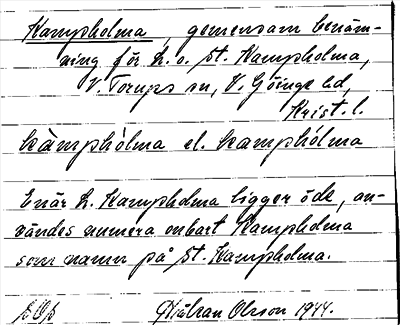 Kampholma, gemensam benäm-
ning för L. o. St. Kampholma,
V. Torups sn, V. Göinge hd,
Krist. l.
kàmphólma el. kamphólma
Enär L. Kampholma ligger öde, an-
vändes numera enbart Kampholma
som namn på St. Kampholma.
Hjälmar Olsson 1944.